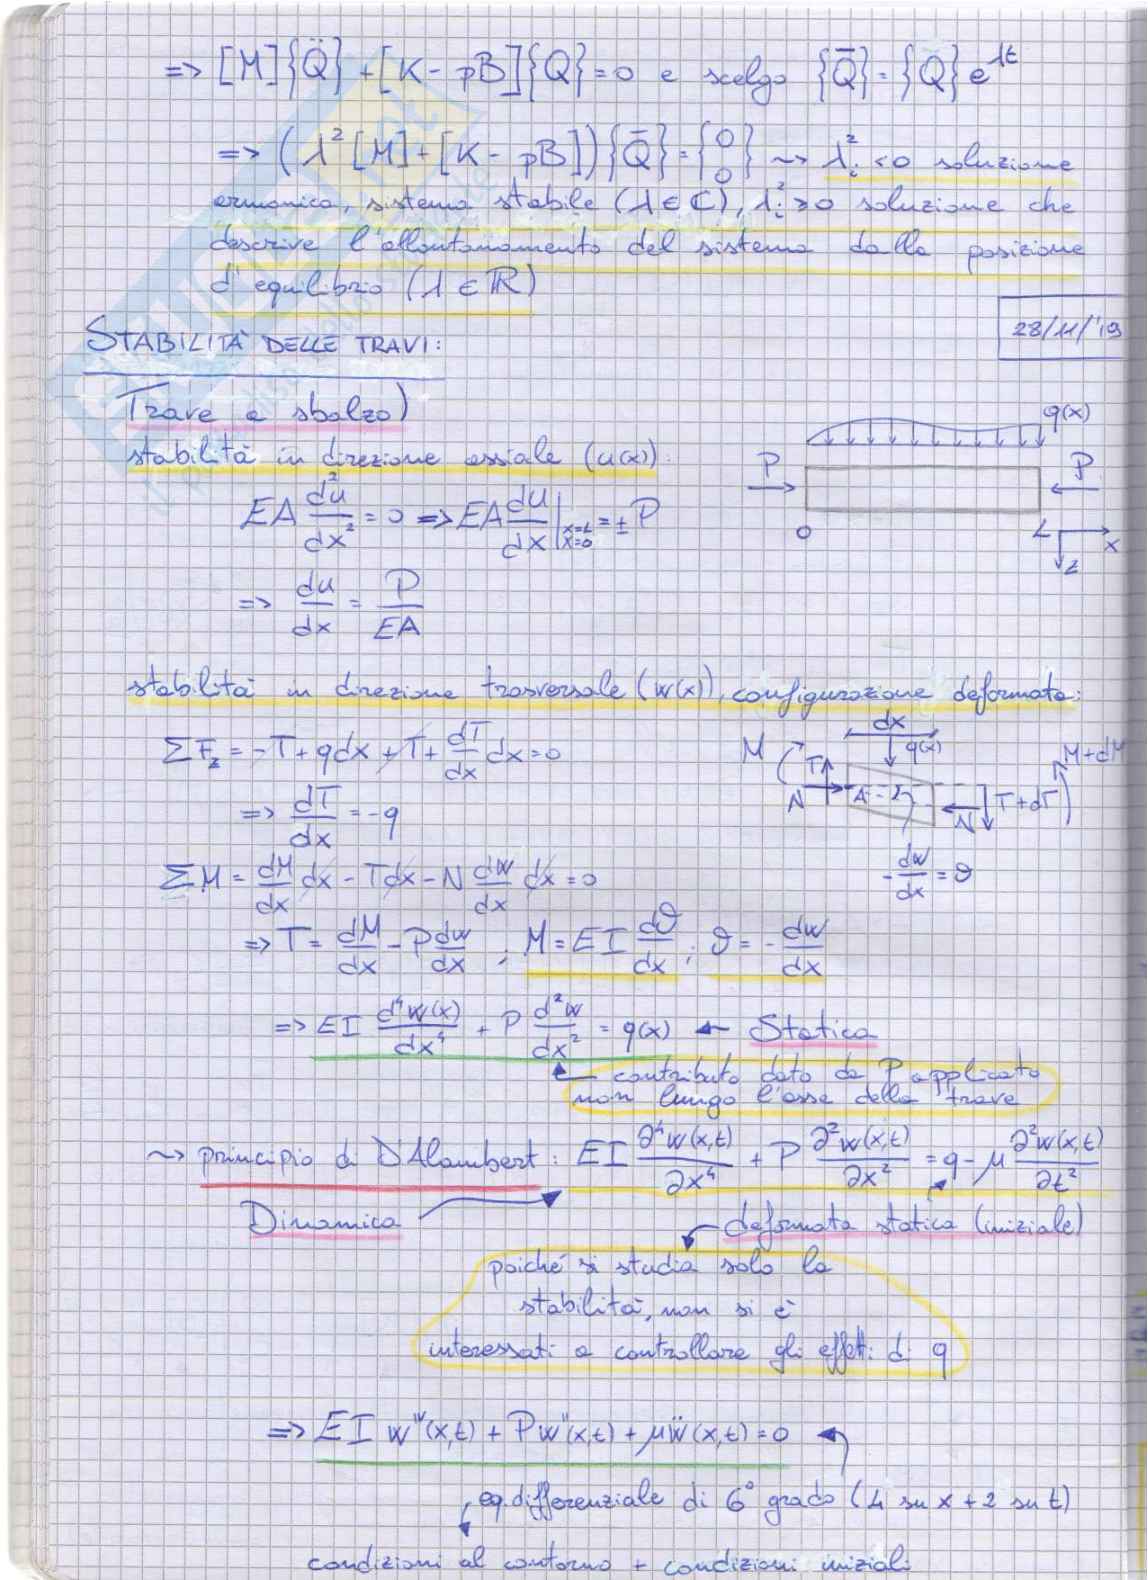 => [M]{Q̈} + [K - pB]{Q} = 0 e scelgo {Q̄} = {Q}e^λt
=> (λ²[M] + [K - pB]){Q̄} = {0 0} ~> λᵢ² < 0 soluzione
armonica, sistema stabile (λ ∈ ℂ), λᵢ² > 0 soluzione che
descrive l'allontanamento del sistema dalla posizione
d'equilibrio (λ ∈ ℝ)
28/11/'19
STABILITÀ DELLE TRAVI:
Trave a sbalzo)
stabilità in direzione assiale (u(x)):
q(x)
P P
0 L x z
EA d²u/dx² = 0 => EA du/dx |x=L x=0 = ± P
=> du/dx = P/EA
stabilità in direzione trasversale (w(x)), configurazione deformata:
ΣF_z = -T + qdx + T + dT/dx dx = 0
=> dT/dx = -q
dx
M T q(x) M+dM
N A N T+dT
-dw/dx = ϑ
ΣM = dM/dx dx - Tdx - N dw/dx dx = 0
=> T = dM/dx - P dw/dx ; M = EI dϑ/dx ; ϑ = - dw/dx
=> EI d⁴w(x)/dx⁴ + P d²w/dx² = q(x) ← Statica
contributo dato da P applicato
non lungo l'asse della trave
~> principio di D'Alambert: EI ∂⁴w(x,t)/∂x⁴ + P ∂²w(x,t)/∂x² = q - μ ∂²w(x,t)/∂t²
Dinamica
deformata statica (iniziale)
poiché si studia solo la
stabilità, non si è
interessati a controllare gli effetti di q
=> EI w''''(x,t) + Pw''(x,t) + μẅ(x,t) = 0
eq. differenziale di 6° grado (4 su x + 2 su t)
condizioni al contorno + condizioni iniziali